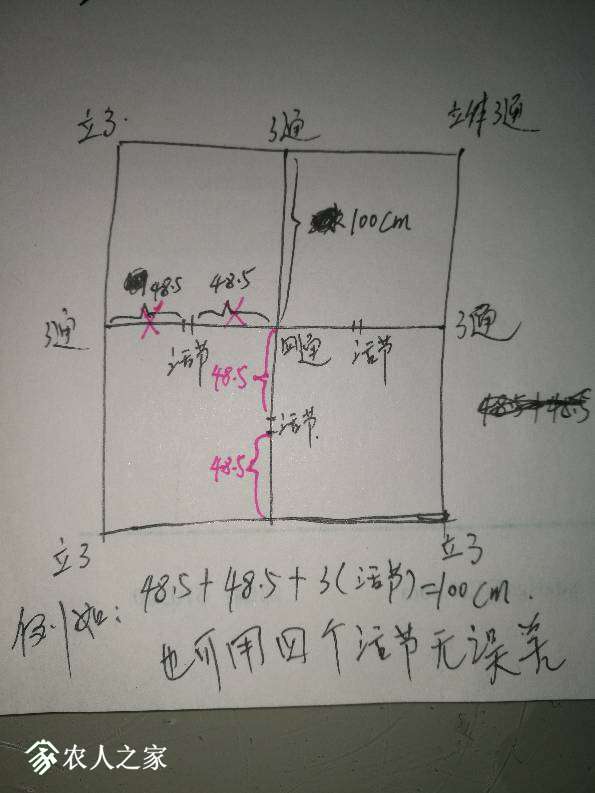 立3.
3通
立体3通
100cm
48.5
48.5
3通
活节
四通
活节
3通
48.5
活节.
48.5+48.5
48.5
立3
立3
例如: 48.5+48.5+3(活节)=100cm.
也可用四个活节无误差
农人之家